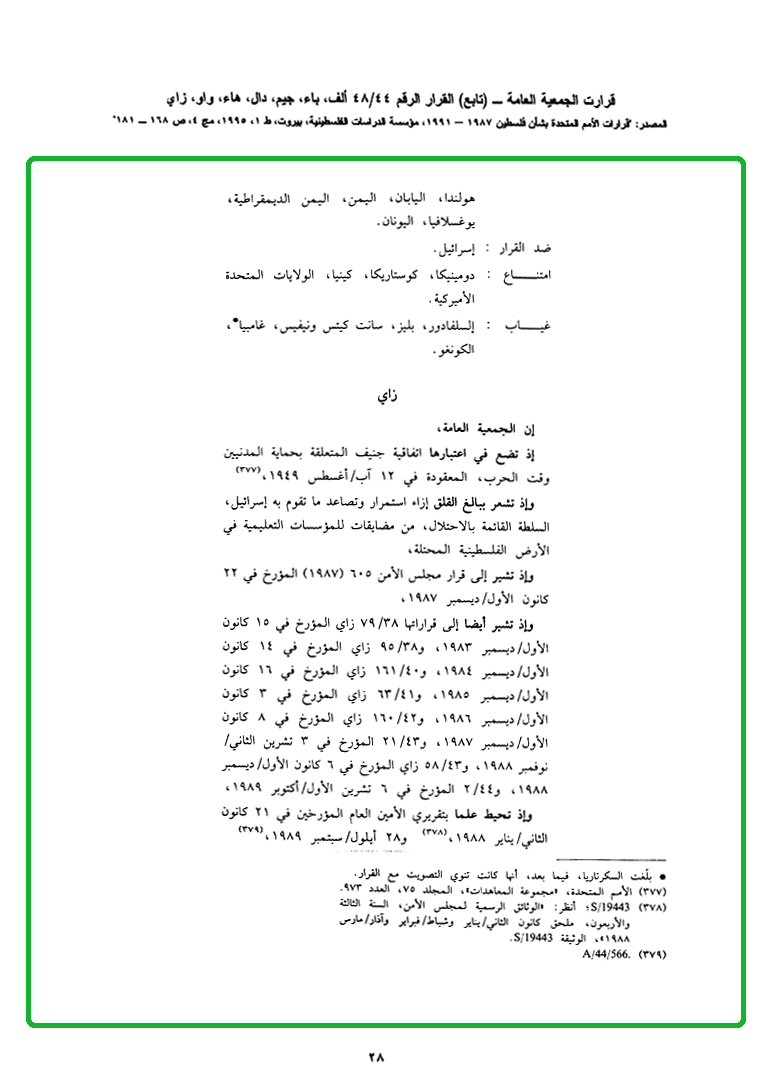 قرارت الجمعية العامة ــ (تابع) القرار الرقم ٤٨/٤٤ ألف، باء، جيم، دال، هاء، واو، زاي
المصدر: "قرارات الأمم المتحدة بشأن فلسطين ١٩٨٧ – ١٩٩١، مؤسسة الدراسات الفلسطينية، بيروت، ط ١، ١٩٩٥، مج ٤، ص ١٦٨ – ١٨١"
هولندا، اليابان، اليمن، اليمن الديمقراطية،
يوغسلافيا، اليونان.
ضد القرار : إسرائيل.
امتنـــــاع : دومينيكا، كوستاريكا، كينيا، الولايات المتحدة
الأميركية.
غيـــــاب : إلسلفادور، بليز، سانت كيتس ونيفيس، غامبيا●،
الكونغو.
زاي
إن الجمعية العامة،
إذ تضع في اعتبارها اتفاقية جنيف المتعلقة بحماية المدنيين
وقت الحرب، المعقودة في ١٢ آب/أغسطس ١٩٤٩،(٣٧٧)
وإذ تشعر ببالغ القلق إزاء استمرار وتصاعد ما تقوم به إسرائيل،
السلطة القائمة بالاحتلال، من مضايقات للمؤسسات التعليمية في
الأرض الفلسطينية المحتلة،
وإذ تشير إلى قرار مجلس الأمن ٦٠٥ (١٩٨٧) المؤرخ في ٢٢
كانون الأول/ديسمبر ١٩٨٧،
وإذ تشير أيضا إلى قراراتها ٧٩/٣٨ زاي المؤرخ في ١٥ كانون
الأول/ديسمبر ١٩٨٣، و٩٥/٣٨ زاي المؤرخ في ١٤ كانون
الأول/ديسمبر ١٩٨٤، و١٦١/٤٠ زاي المؤرخ في ١٦ كانون
الأول/ديسمبر ١٩٨٥، و٦٣/٤١ زاي المؤرخ في ٣ كانون
الأول/ديسمبر ١٩٨٦، و١٦٠/٤٢ زاي المؤرخ في ٨ كانون
الأول/ديسمبر ١٩٨٧، و٢١/٤٣ المؤرخ في ٣ تشرين الثاني/
نوفمبر ١٩٨٨، و٥٨/٤٣ زاي المؤرخ في ٦ كانون الأول/ديسمبر
١٩٨٨، و٢/٤٤ المؤرخ في ٦ تشرين الأول/أكتوبر ١٩٨٩،
وإذ تحيط علما بتقريري الأمين العام المؤرخين في ٢١ كانون
الثاني/يناير ١٩٨٨،(٣٧٨) و٢٨ أيلول/سبتمبر ١٩٨٩،(٣٧٩)
● بلّغت السكرتاريا، فيما بعد، أنها كانت تنوي التصويت مع القرار.
(٣٧٧) الأمم المتحدة، «مجموعة المعاهدات»، المجلد ٧٥، العدد ٩٧٣.
(٣٧٨) S/19443؛ أنظر: «الوثائق الرسمية لمجلس الأمن، السنة الثالثة
والأربعون، ملحق كانون الثاني/يناير وشباط/فبراير وآذار/مارس
١٩٨٨»، الوثيقة S/19443.
(٣٧٩) A/44/566.
٢٨